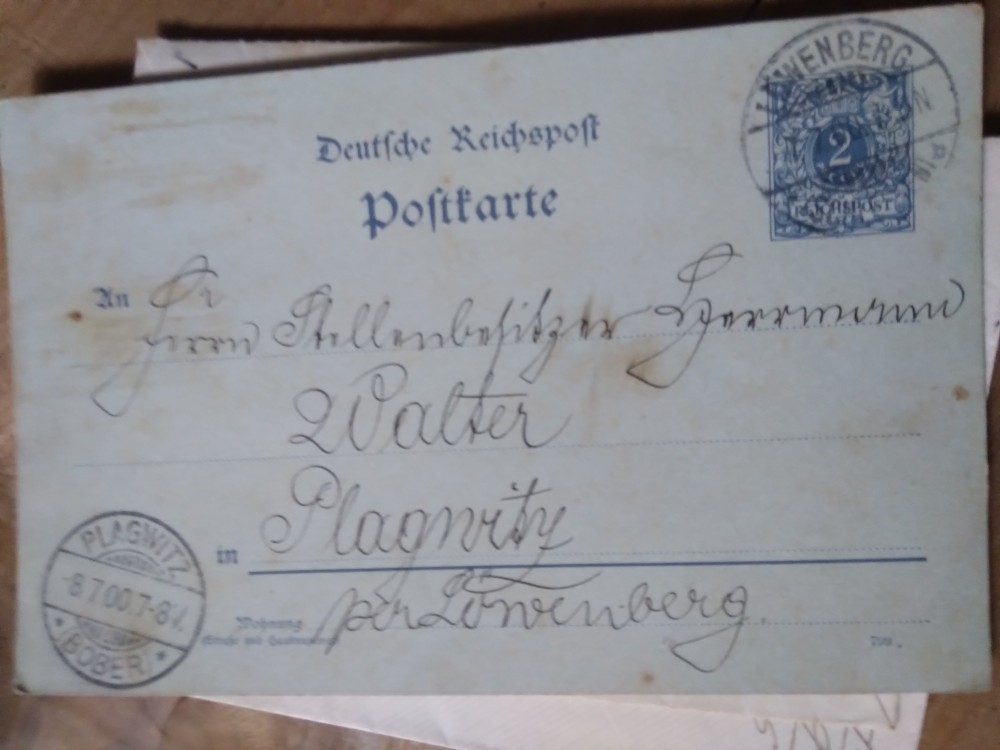 Deutsche Reichspost
Postkarte
LÖWENBERG
2
REICHSPOST
An
Herrn Stellenbesitzer Herrmann
Walter
in Plagwitz
per Löwenberg.
Wohnung
PLAGWITZ
-8.7.00.7-8V.
* (BOBER) *